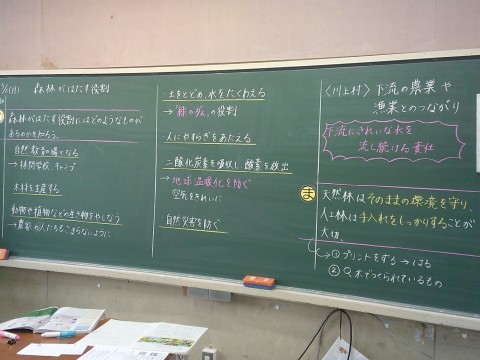 森林がはたす役割
森林がはたす役割にはどのようなものが
あるのかを知ろう。
自然教育の場となる
→林間学校、キャンプ
木材を生産する
動物や植物などの生き物をやしなう
→農家の人たちもこまらないように
土をとどめ、水をたくわえる
→「緑のダム」の役割
人にやすらぎをあたえる
二酸化炭素を吸収し、酸素を放出
→地球温暖化を防ぐ
空気をきれいに
自然災害を防ぐ
〈川上村〉下流の農業や
漁業とのつながり
下流にきれいな水を
流し続ける責任
ま
天然林はそのままの環境を守り、
人工林は手入れをしっかりすることが
大切。
→①プリントをする→はる
②Q.木でつくられているもの